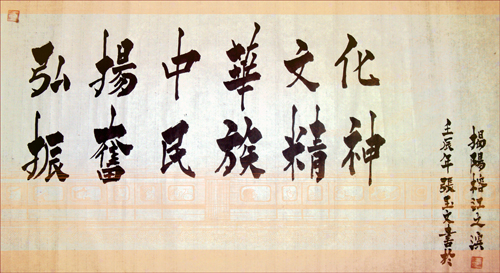 弘揚中華文化
振奮民族精神
壬辰年張玉文書於
揭陽榕江之濱